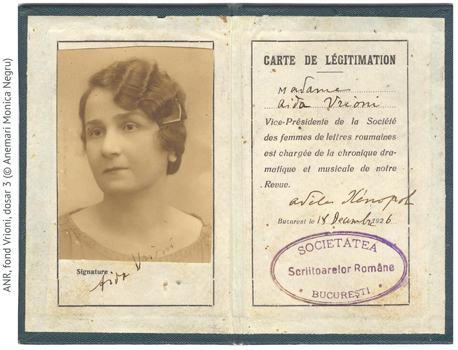 ANR, fond Vrioni, dosar 3 (© Anemari Monica Negru)
Signature :
Aida Vrioni
CARTE DE LÉGITIMATION
Madame
Aida Vrioni
Vice-Présidente de la Société
des femmes de lettres roumaines
est chargée de la chronique dra-
matique et musicale de notre
Revue.
Adela Xénopol
Bucarest le 18 Decembre 1926
SOCIETATEA
Scriitoarelor Române
BUCUREȘTI